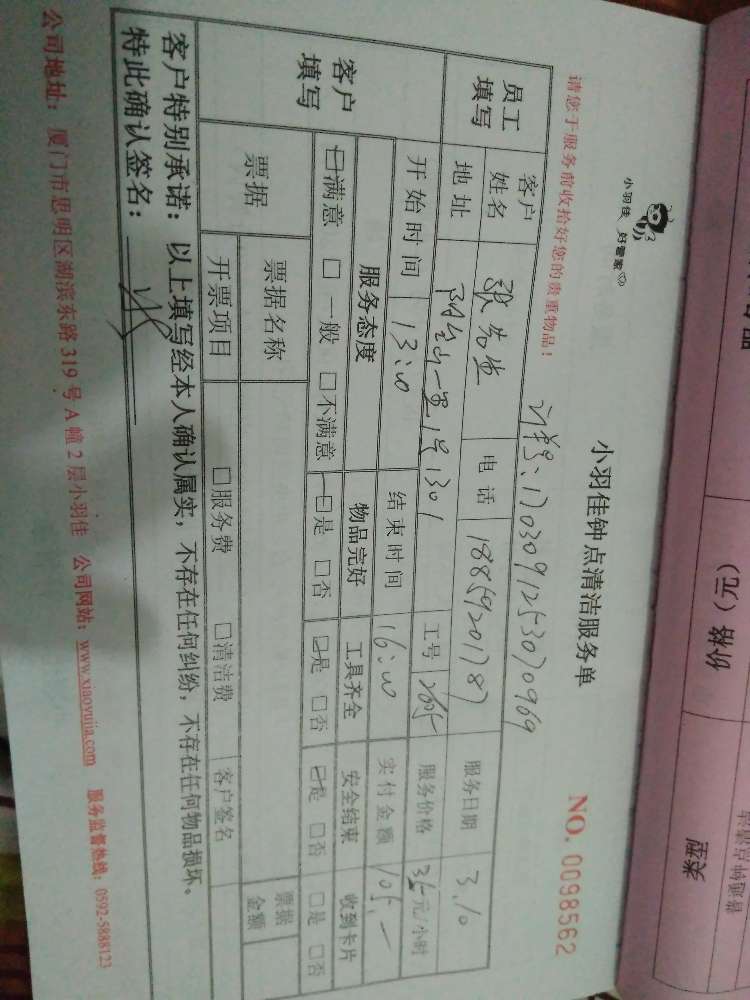 小羽佳 好管家
小羽佳钟点清洁服务单
请您于服务前收拾好您的贵重物品！
NO. 0098562
订单号：1703091253070969
员工填写
客户姓名 张先生 电话 18859201787 服务日期 3.10
地址 阳台山一里1号1301 工号 2605 服务价格 35元/小时
开始时间 13:00 结束时间 16:00 实付金额 105.—
客户填写
服务态度 物品完好 工具齐全 安全结束 收到卡片
☑满意 □一般 □不满意 ☑是 □否 ☑是 □否 ☑是 □否 □是 □否
票据 票据名称 票据金额
开票项目 □服务费 □清洁费 客户签名
客户特别承诺：以上填写经本人确认属实，不存在任何纠纷，不存在任何物品损坏。
特此确认签名：
公司地址：厦门市思明区湖滨东路319号A幢2层小羽佳 公司网站：www.xiaoyujia.com 服务监督热线：0592-5888123
价格（元）
类型